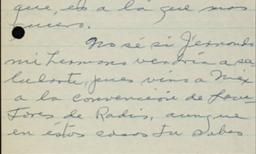 que, es a la que mas
quiero.
No sé si Fernando
mi hermano vendría a sa
ludarte, pues vino a Mex
a la convención de Locu
tores de Radio, aunque
en estos casos tu sabes